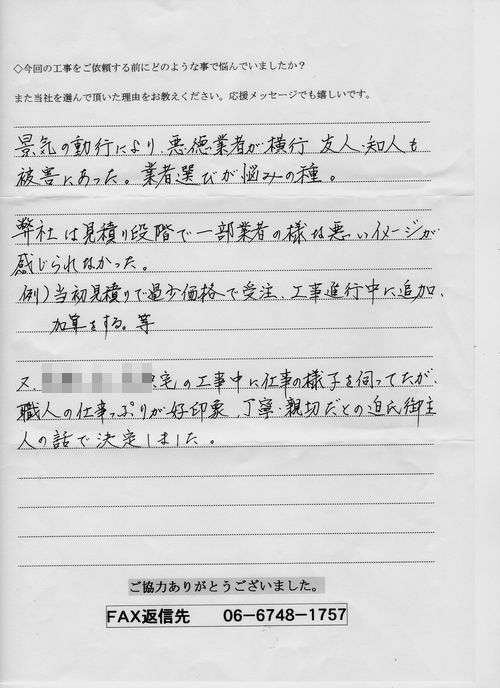 ◇今回の工事をご依頼する前にどのような事で悩んでいましたか?
また当社を選んで頂いた理由をお教えください。応援メッセージでも嬉しいです。
景気の動行により、悪徳業者が横行 友人・知人も
被害にあった。業者選びが悩みの種。
弊社は見積り段階で一部業者の様な悪いイメージが
感じられなかった。
例)当初見積りで過少価格で受注、工事進行中に追加、
加算をする。等
又、宅の工事中に仕事の様子を伺ってたが、
職人の仕事っぷりが好印象、丁寧・親切だとの迫氏御主
人の話で決定しました。
ご協力ありがとうございました。
FAX返信先 06-6748-1757